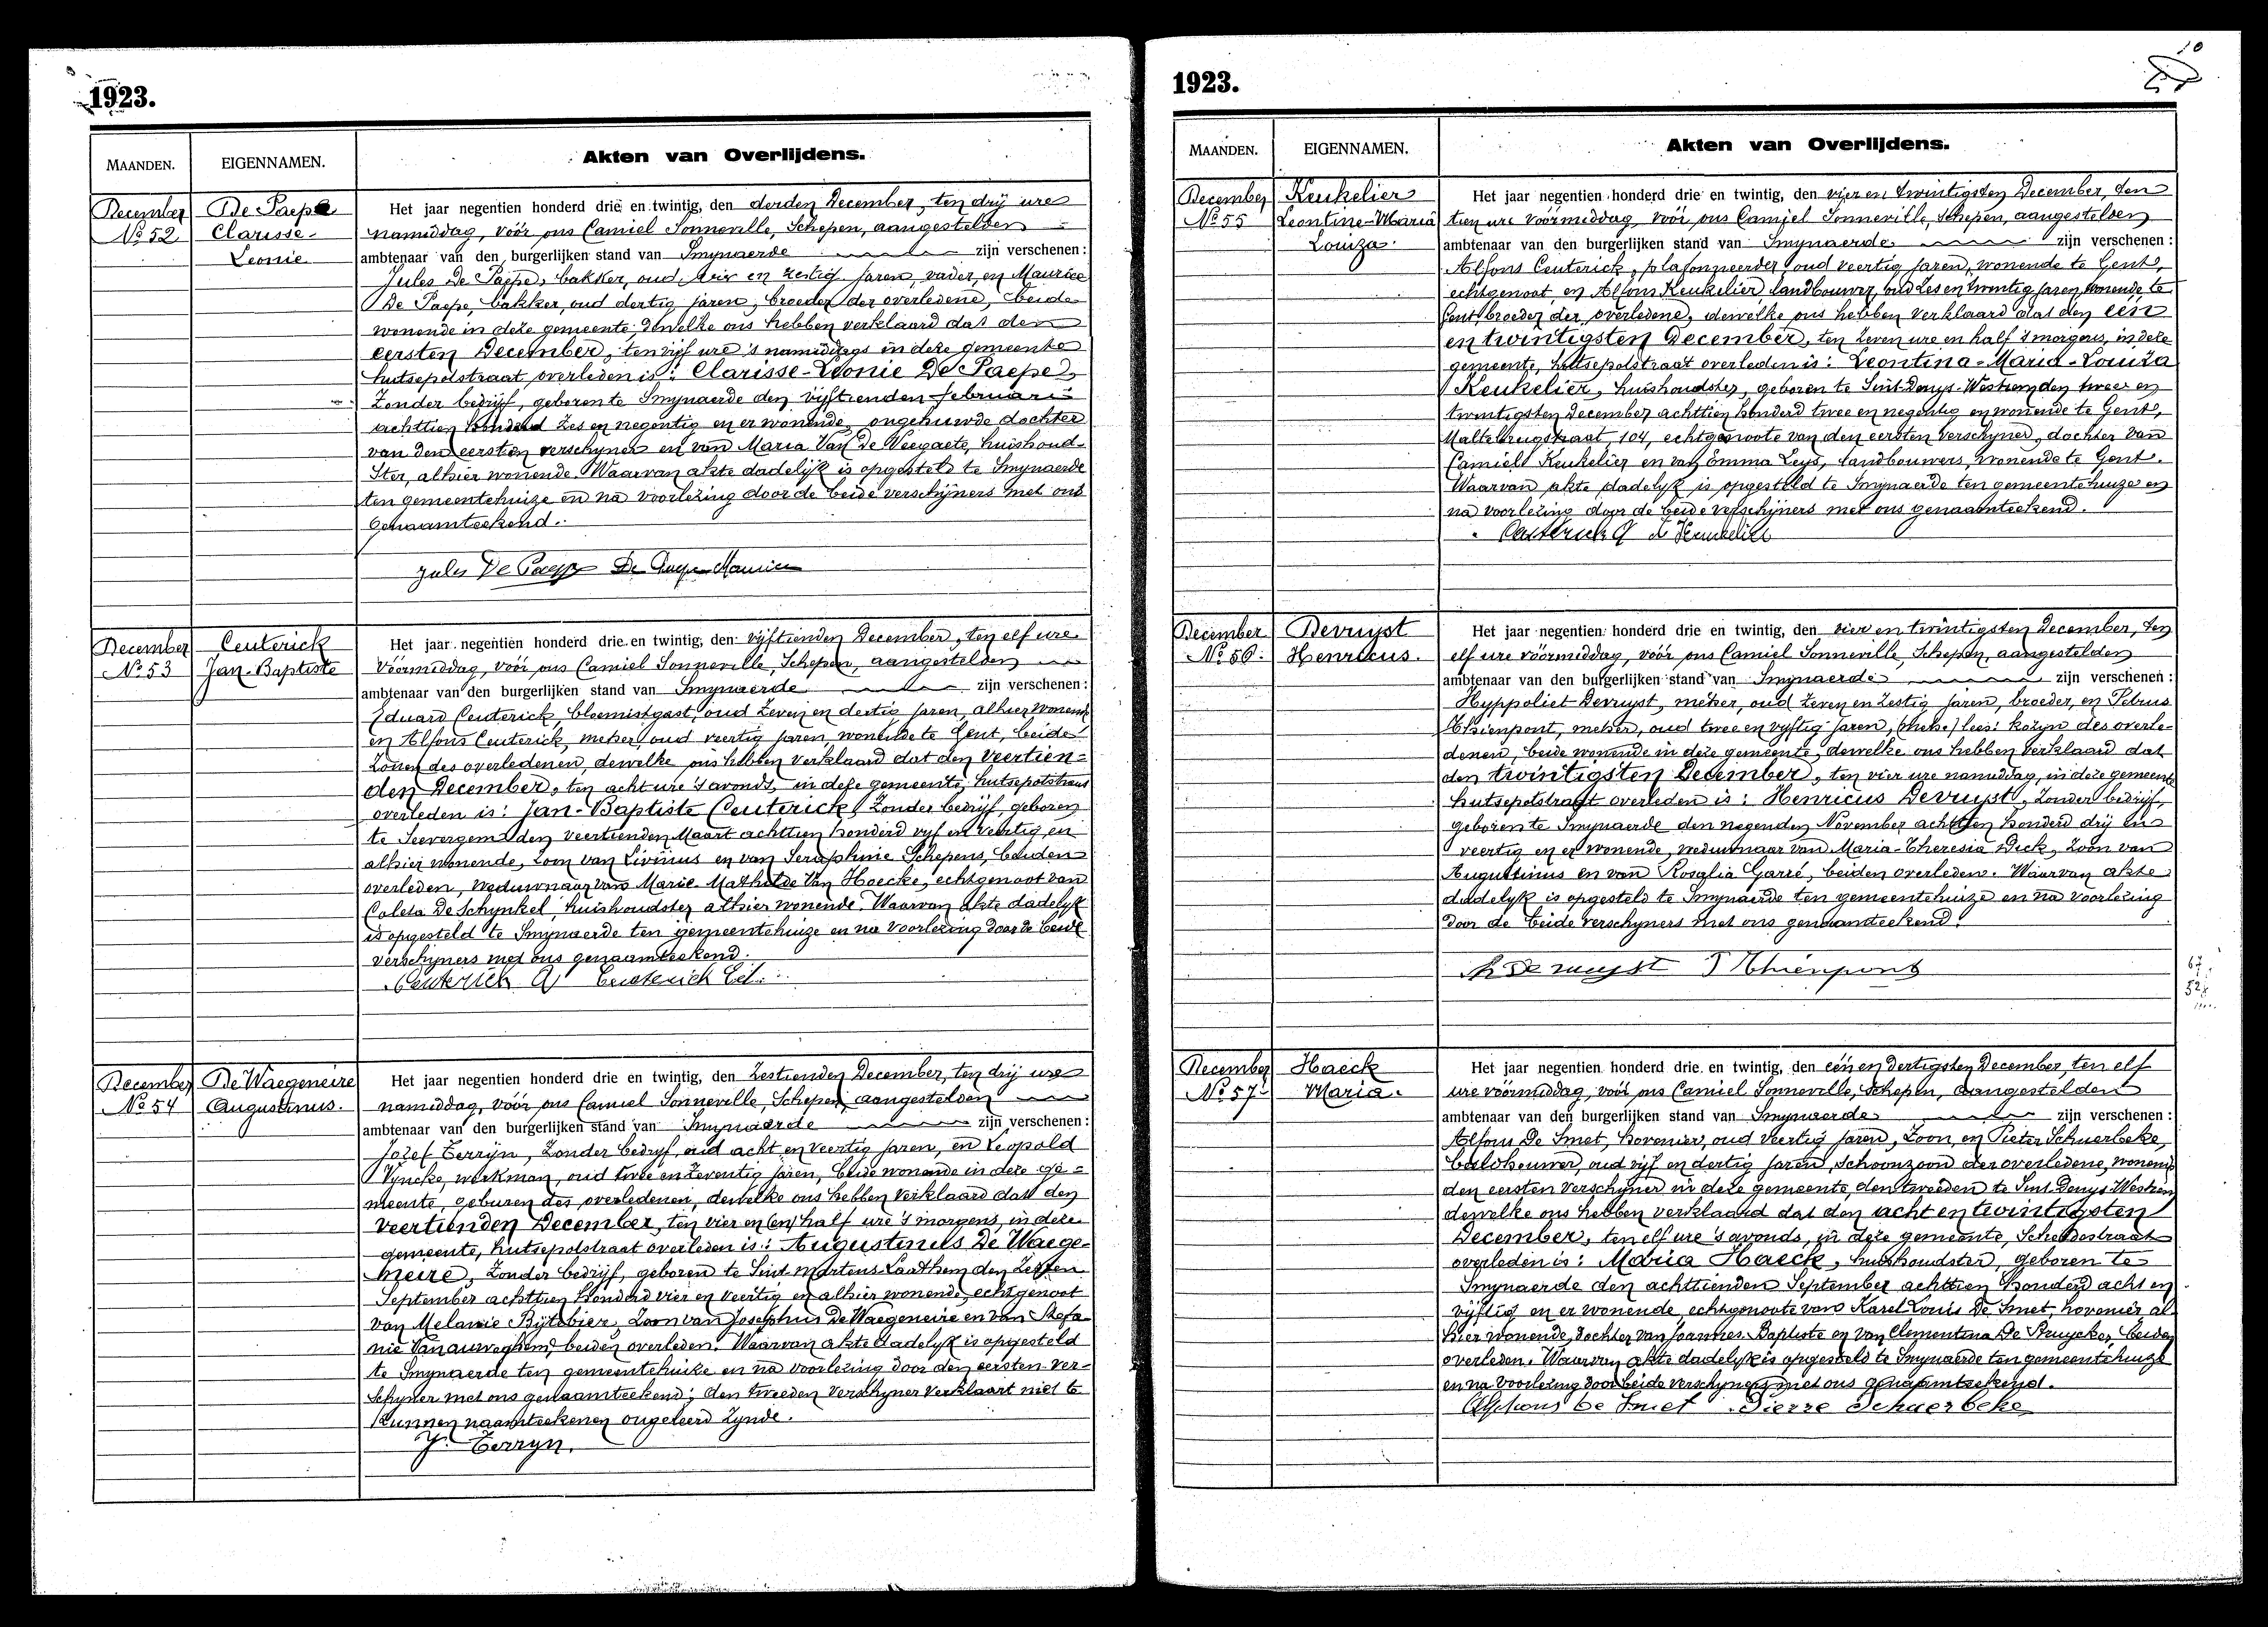 1923.
MAANDEN.
EIGENNAMEN.
Akten van Overlijdens.
December
No 52
De Paepe
Clarisse-
Leonie
Het jaar negentien honderd drie en twintig, den derden December, ten drij ure
namiddag, vóór ons Camiel Sonneville, Schepen, aangestelden
ambtenaar van den burgerlijken stand van Smijnaerde zijn verschenen :
Jules De Paepe, bakker, oud en zestig jaren, vader, en Maurice
De Paepe, bakker, oud dertig jaren, broeder der overledene, beide
wonende in deze gemeente dewelke ons hebben verklaard dat den
eersten December, ten vijf ure 's namiddags in deze gemeente
hutsepotstraat overleden is : Clarisse-Leonie De Paepe,
Zonder bedrijf, geboren te Smijnaerde den vijftienden februari
achttien honderd zes en negentig en er wonende, ongehuwde dochter
van den eersten verschijner en van Maria Van De Weegaete, huishoud-
ster, alhier wonende. Waarvan akte dadelijk is opgesteld te Smijnaerde
ten gemeentehuize en na voorlezing door de beide verschijners met ons
genaamteekend.
Jules De Paepe De Paepe Maurice
December
No 53
Ceuterick
Jan-Baptiste
Het jaar negentien honderd drie en twintig, den vijftienden December, ten elf ure
vóórmiddag, vóór ons Camiel Sonneville, Schepen, aangestelden
ambtenaar van den burgerlijken stand van Smijnaerde zijn verschenen :
Eduard Ceuterick, bloemistgast, oud zeven en dertig jaren, alhier wonende
en Alfons Ceuterick, metser, oud veertig jaren, wonende te Gent, beide
zonen des overledenen, dewelke ons hebben verklaard dat den veertien=
den December, ten acht ure 's avonds, in deze gemeente, hutsepotstraat
overleden is : Jan-Baptiste Ceuterick, Zonder bedrijf, geboren
te Seevergem den veertienden Maart achttien honderd vijf en veertig, en
alhier wonende, zoon van Livinus en van Seraphinie Schepens, beiden
overleden, weduwnaar van Marie Mathilde Van Hoecke, echtgenoot van
Coleta De Schynkel, huishoudster alhier wonende. Waarvan akte dadelijk
is opgesteld te Smijnaerde ten gemeentehuize en na voorlezing door de beide
verschijners met ons genaamteekend.
Ceuterick A Ceuterick Ed.
December
No 54
De Waegeneire
Augustinus.
Het jaar negentien honderd drie en twintig, den zestienden December, ten drij ure
namiddag, vóór ons Camiel Sonneville, Schepen, aangestelden
ambtenaar van den burgerlijken stand van Smijnaerde zijn verschenen :
Jozef Terrijn, Zonder bedryf, oud acht en veertig jaren, en Leopold
Vyncke, werkman, oud twee en zeventig jaren, beide wonende in deze ge=
meente, geburen des overledenen, dewelke ons hebben verklaard dat den
veertienden December, ten vier en (en) half ure 's morgens, in deze
gemeente, hutsepotstraat overleden is : Augustinus De Waege-
neire, Zonder bedrijf, geboren te Sint Martens-Laathem den zesten
September achttien honderd vier en veertig en alhier wonende, echtgenoot
van Melanie Bijtebier, Zoon van Josephus De Waegeneire en van Stefa-
nie Vanauweghem, beiden overleden. Waarvan akte dadelyk is opgesteld
te Smijnaerde ten gemeentehuize en na voorlezing door den eersten ver-
schyner met ons genaamteekend; den tweeden verschyner verklaart niet te
kunnen naamteekenen ongeleerd zynde.
J. Terryn.
1923.
MAANDEN.
EIGENNAMEN.
Akten van Overlijdens.
December
No 55
Keukelier
Leontine-Maria
Louiza.
Het jaar negentien honderd drie en twintig, den vier en twintigsten December, ten
tien ure vóórmiddag, vóór ons Camiel Sonneville, Schepen, aangestelden
ambtenaar van den burgerlijken stand van Smijnaerde zijn verschenen :
Alfons Ceuterick, plafonneerder, oud veertig jaren, wonende te Gent,
echtgenoot en Alfons Keukelier, landbouwer, oud zes en twintig jaren, wonende te
Gent, broeder der overledene, dewelke ons hebben verklaard dat den een
en twintigsten December, ten zeven ure en half 's morgens, in deze
gemeente, hutsepotstraat overleden is : Leontina-Maria-Louiza
Keukelier, huishoudster, geboren te Sint-Denys-Westrem den twee en
twintigsten December achttien honderd twee en negentig en wonende te Gent,
Maltebrugstraat, 104, echtgenoote van den eersten verschyner, dochter van
Camiel Keukelier en van Emma Leys, landbouwers, wonende te Gent.
Waarvan akte dadelyk is opgesteld te Smijnaerde ten gemeentehuize en
na voorlezing door de beide verschijners met ons genaamteekend.
Ceuterick A Keukelier
December
No 56.
Devruyst
Henricus.
Het jaar negentien honderd drie en twintig, den vier en twintigsten December, ten
elf ure vóórmiddag, vóór ons Camiel Sonneville, Schepen, aangestelden
ambtenaar van den burgerlijken stand van Smijnaerde zijn verschenen :
Hyppoliet Devruyst, metser, oud zeven en zestig jaren, broeder, en Petrus
Thienpont, metser, oud twee en vyftig jaren, lees: kozyn des overle-
denen, beide wonende in deze gemeente, dewelke ons hebben verklaard dat
den twintigsten December, ten vier ure namiddag, in deze gemeente
hutsepotstraat overleden is : Henricus Devruyst, Zonder bedrijf,
geboren te Smijnaerde den negenden November achttien honderd drij en
veertig en er wonende, weduwnaar van Maria-Theresia Dick, zoon van
Augustinus en van Rosalia Garré, beiden overleden. Waarvan akte
dadelyk is opgesteld te Smijnaerde ten gemeentehuize en na voorlezing
door de beide verschyners met ons genaamteekend.
H Devruyst P Thienpont
December
No 57
Haeck
Maria.
Het jaar negentien honderd drie en twintig, den één en dertigsten December, ten elf
ure vóórmiddag, vóór ons Camiel Sonneville, Schepen, aangestelden
ambtenaar van den burgerlijken stand van Smijnaerde zijn verschenen :
Alfons De Smet, hovenier, oud veertig jaren, Zoon, en Pieter Schuerbeke,
oud vijf en dertig jaren, schoonzoon der overledene, wonende
den eersten verschyner in deze gemeente, den tweeden te Sint Denys Westrem
dewelke ons hebben verklaard dat den acht en twintigsten
December, ten elf ure 's avonds, in deze gemeente, Scheldestraat
overleden is : Maria Haeck, huishoudster, geboren te
Smijnaerde den achttienden September achttien honderd acht en
vijftig en er wonende, echtgenoote van Karel Louis De Smet, hovenier al-
hier wonende, dochter van Joannes-Baptiste en van Clementina De Bruycker, beiden
overleden. Waarvan akte dadelyk is opgesteld te Smijnaerde ten gemeentehuize
en na voorlezing door beide verschyners met ons genaamteekend.
Alphons De Smet Pierre Schuerbeke